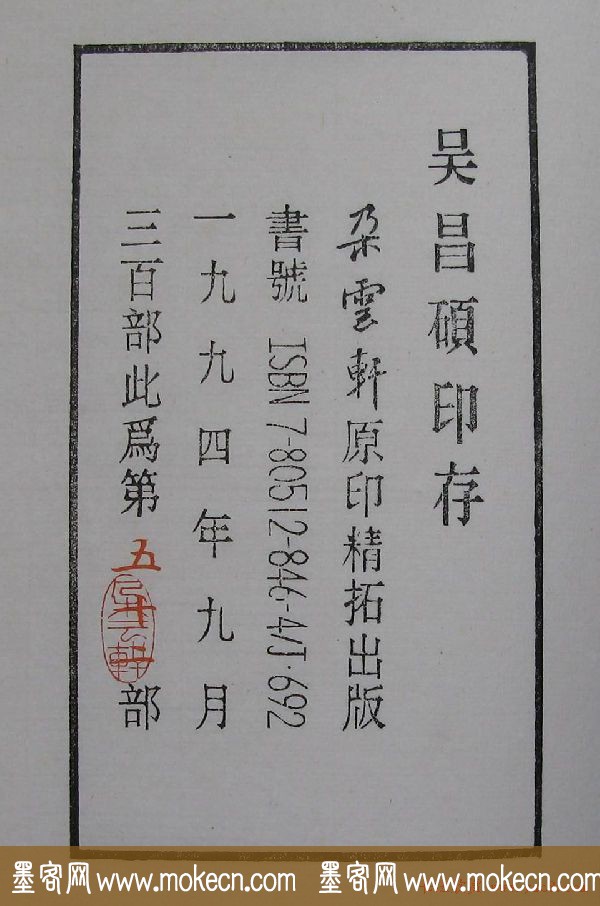 吴昌碩印存
朵雲軒原印精拓出版
書號 ISBN 7-80512-846-4/J·692
一九九四年九月
三百部此爲第五十一部
朵云軒
墨客网 www.mokecn.com 墨客网 www.mokecn.com